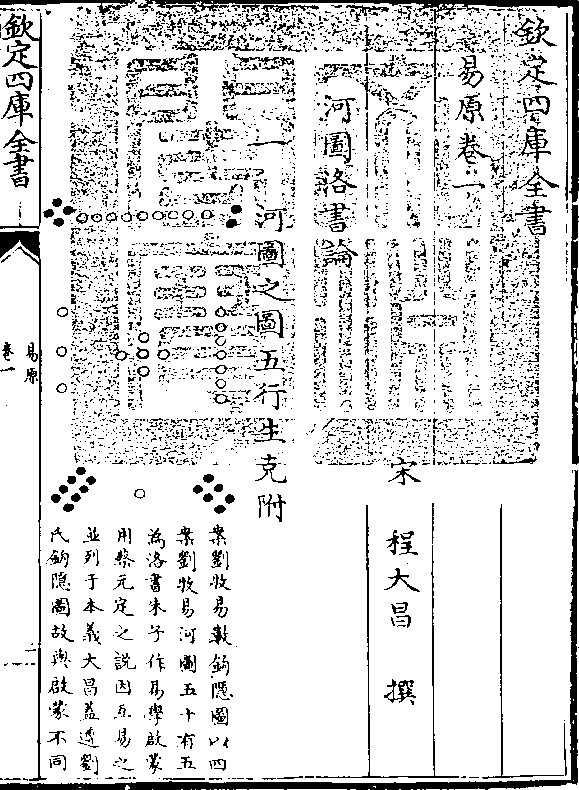 欽定四庫全書
易原卷一
宋 程大昌 撰
河圖洛書論
一河圖之圖五行生克附
案劉牧易數鈎隠圖以四
案劉牧易河圖五十有五
為洛書朱子作易學啟蒙
用蔡元定之說因互易之
並列于本義大昌葢遵劉
氏鈎隠圖故與啟蒙不同
欽定四庫全書
易原
卷一